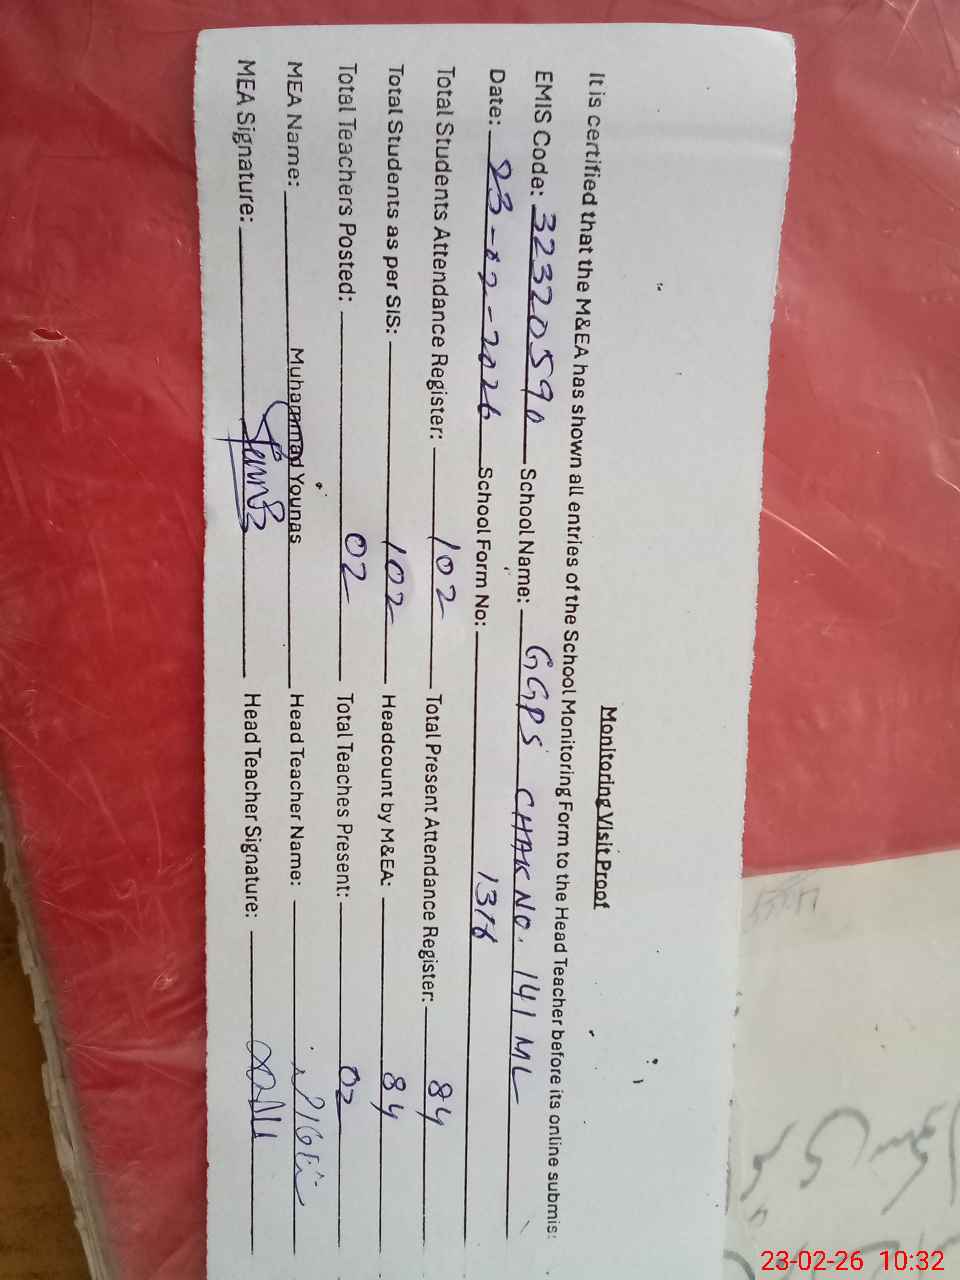 Monitoring Visit Proof
It is certified that the M&EA has shown all entries of the School Monitoring Form to the Head Teacher before its online submis:
EMIS Code: 32320590 School Name: GGPS CHAK NO. 141 ML
Date: 23-02-2026 School Form No: 1316
Total Students Attendance Register: 102 Total Present Attendance Register: 84
Total Students as per SIS: 102 Headcount by M&EA: 84
Total Teachers Posted: 02 Total Teaches Present: 02
MEA Name: Muhammad Younas Head Teacher Name:
MEA Signature: Head Teacher Signature:
23-02-26 10:32